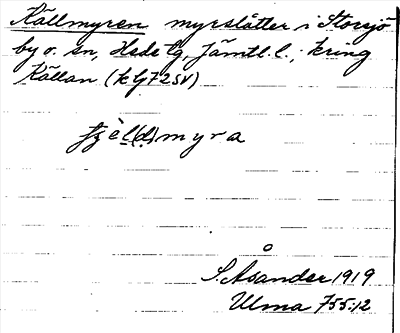 Källmyren myrslåtter i Storsjö
by o. sn, Hede tg, Jämtl. l., kring
Källan (k lj 7 2 SV)
Å
S. Åsander 1919
Ulma 755:12